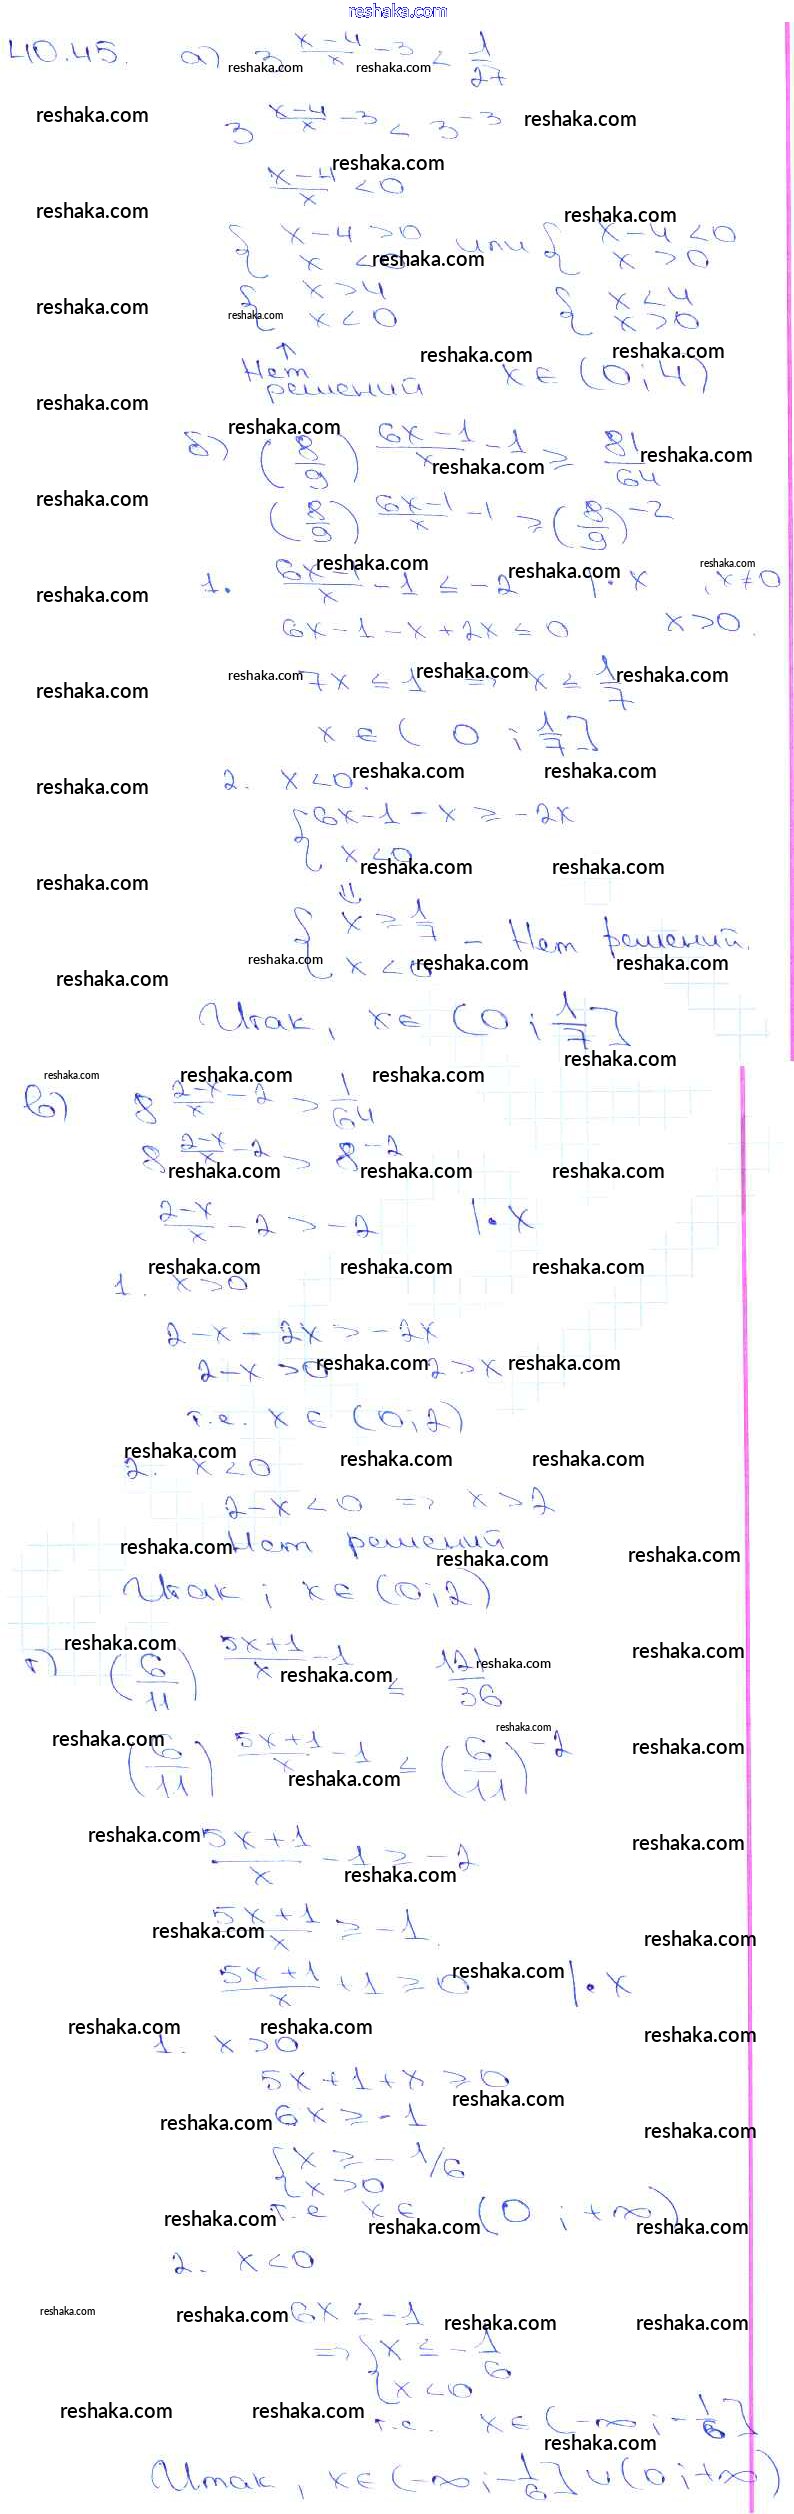 reshaka.com
40.45. а) 3^((x-4)/x - 3) < 1/27
3^((x-4)/x - 3) < 3^(-3)
(x-4)/x < 0
{ x-4 > 0 или { x-4 < 0
x < 0 x > 0
{ x > 4 { x < 4
x < 0 x > 0
↑
Нет решений x ∈ (0; 4)
б) (8/9)^((6x-1)/x - 1) ≥ 81/64
(8/9)^((6x-1)/x - 1) ≥ (8/9)^(-2)
1. (6x-1)/x - 1 ≤ -2 |·x , x≠0
6x-1-x+2x ≤ 0 x>0.
7x ≤ 1 => x ≤ 1/7
x ∈ (0 ; 1/7]
2. x<0.
{ 6x-1-x ≥ -2x
x<0
⇓
{ x ≥ 1/7
x<0 - Нет решений.
Итак, x ∈ (0 ; 1/7]
в) 8^((2-x)/x - 2) > 1/64
8^((2-x)/x - 2) > 8^(-2)
(2-x)/x - 2 > -2 |·x
1. x>0
2-x-2x > -2x
2-x>0 2>x
т.е. x ∈ (0;2)
2. x<0
2-x<0 => x>2
Нет решений
Итак ; x ∈ (0;2)
г) (6/11)^((5x+1)/x - 1) ≤ 121/36
(6/11)^((5x+1)/x - 1) ≤ (6/11)^(-2)
(5x+1)/x - 1 ≥ -2
(5x+1)/x ≥ -1
(5x+1)/x + 1 ≥ 0 |·x
1. x>0
5x+1+x ≥ 0
6x ≥ -1
{ x ≥ -1/6
x>0
т.е x ∈ (0 ; +∞)
2. x<0
6x ≤ -1
=> { x ≤ -1/6
x<0
т.е. x ∈ (-∞ ; -1/6]
Итак, x ∈ (-∞ ; -1/6] ∪ (0 ; +∞)